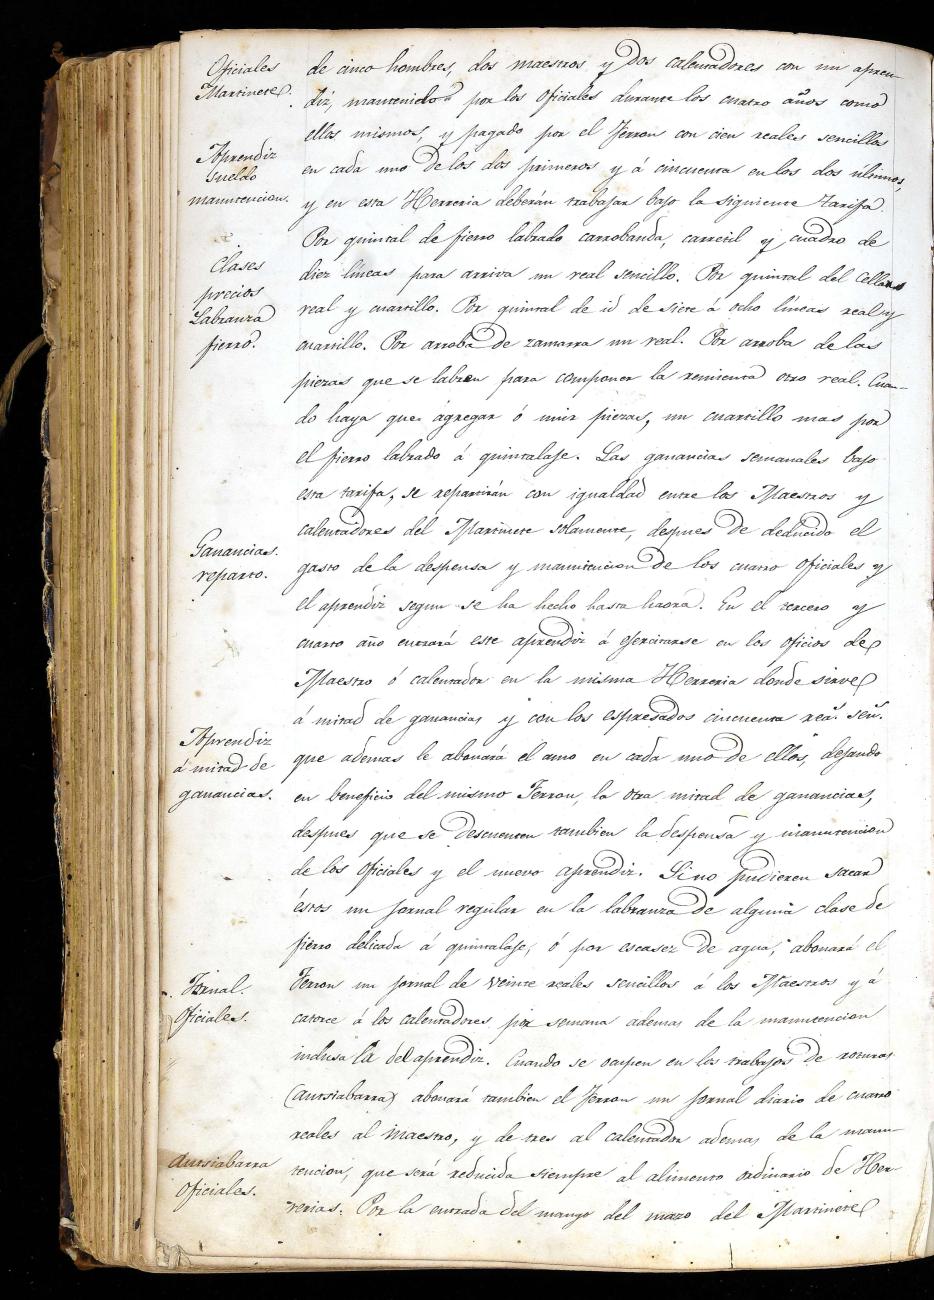 Oficiales
Martinete.
Aprendiz
sueldo
manutencion.
Clases
precios
Labranza
fierro.
Ganancias.
reparto.
Aprendiz
á mitad de
ganancias.
Jornal.
Oficiales.
Aursiabarra
Oficiales.
de cinco hombres, dos maestros y dos calentadores con un apren-
diz, mantenido por los oficiales durante los cuatro años como
ellos mismos, y pagado por el Ferron con cien reales sencillos
en cada uno de los dos primeros y á cincuenta en los dos ultimos,
y en esta Herreria deberán trabajar bajo la siguiente tarifa.
Por quintal de fierro labrado carrobanda, carretil y cuadro de
diez lineas para arriva un real sencillo. Por quintal del
real y cuartillo. Por quintal de id de siete á ocho lineas real y
cuartillo. Por arroba de zamarra un real. Por arroba de las
piezas que se labren para componer la remienta otro real. Cuan-
do haya que agregar ó unir piezas, un cuartillo mas por
el fierro labrado á quintalaje. Las ganancias semanales bajo
esta tarifa, se repartirán con igualdad entre los Maestros y
calentadores del Martinete solamente, despues de deducido el
gasto de la despensa y manutencion de los cuatro oficiales y
el aprendiz segun se ha hecho hasta haora. En el tercero y
cuarto año entrará este aprendiz á ejercitarse en los oficios de
Maestro ó calentador en la misma Herreria donde sirve
á mitad de ganancias y con los espresados cincuenta rea.s sen.s
que ademas le abonará el amo en cada uno de ellos, dejando
en beneficio del mismo Ferron, la otra mitad de ganancias,
despues que se descuenten tambien la despensa y manutencion
de los oficiales y el nuevo aprendiz. Si no pudieren sacar
éstos un jornal regular en la labranza de alguna clase de
fierro delicada á quintalaje, ó por escasez de agua, abonará el
Ferron un jornal de veinte reales sencillos á los Maestros y á
catorce á los calentadores por semana ademas de la manutencion
inclusa la del aprendiz. Cuando se ocupen en los trabajos de roturas
(aursiabarra) abonará tambien el Ferron un jornal diario de cuatro
reales al maestro, y de tres al calentador ademas de la manu-
tencion, que será reducida siempre al alimento ordinario de Her-
rerias. Por la entrada del mango del mazo del Martinete